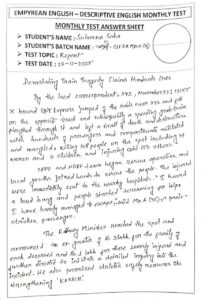 EMPYREAN ENGLISH – DESCRIPTIVE ENGLISH MONTHLY TEST
MONTHLY TEST ANSWER SHEET
STUDENT'S NAME : Suhrena Saha
STUDENT'S BATCH NAME : (CLERK MAINS)
TEST TOPIC : Report
TEST DATE : 22-11-2025
Devastating Train Tragedy Claims Hundreds Lives
By the local correspondent, XYZ, November 22, 2025
X bound Express jumped of the rails near XYZ and fell
on the opposite track and subsequently a speeding goods train
ploughed through it and left a trail of death and destruction
with hundreds of passengers and compartments mutilated
and mangled, killing people on the spot including
women and a children and injuring others.
CRPF and NDRF team began rescue operation, and
local youths joined hands to rescue the people. The injured
were immediately sent to the nearby hospitals. "I heard
a loud bang and people started screaming for help.
I have barely managed to escape", said Mr A (35), a panic-
stricken passenger.
The Railway Minister reached the spot and
announced an ex-gratia of lakh for the family of
each deceased and Rs 1 lakh for those severely injured and
further directed to initiate a detailed inquiry into the
incident. He also promised stricter safety measures like
strengthening "KAVACH".